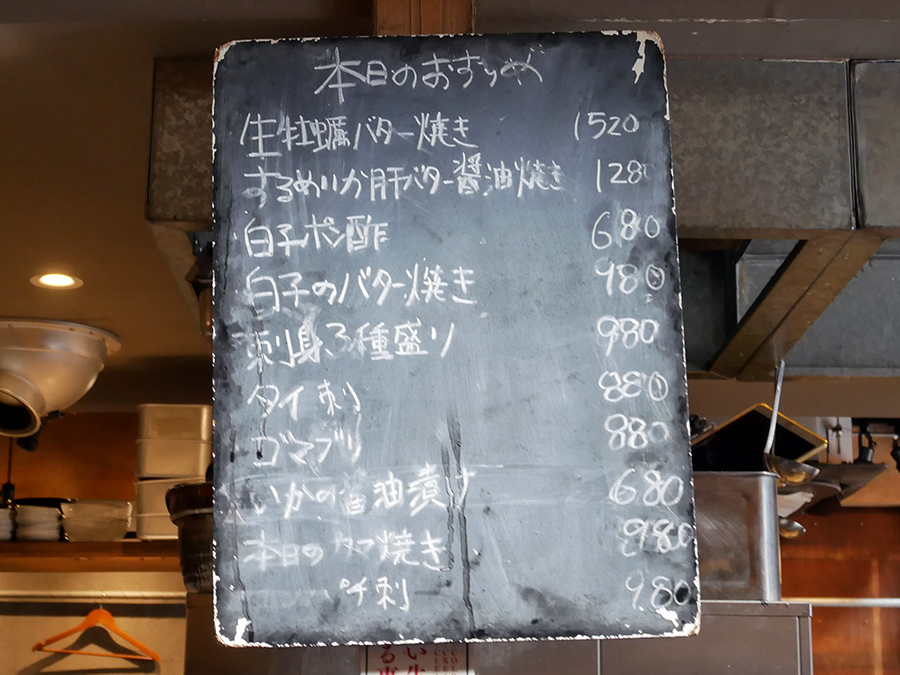 本日のおすすめ
生牡蠣バター焼き 1520
するめいか肝バター醤油焼き 128
白子ポン酢 680
白子のバター焼き 980
刺身3種盛り 980
タイ刺 880
ゴマブリ 880
いかの醤油漬け 680
本日のカマ焼き 980
刺 980
い生
る恵